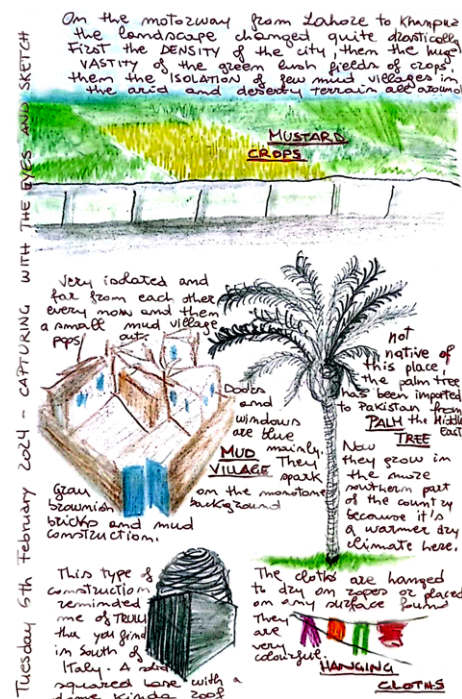 On the motorway from Lahore to Khanpur
the landscape changed quite drastically
First the DENSITY of the city, then the huge
VASTITY of the green lush fields of crops,
them the ISOLATION of few mud villages in
the arid and deserty terrain all around
MUSTARD
CROPS
Tuesday 6th February 2024 - CAPTURING WITH THE EYES AND SKETCH
Very isolated and
far from each other
every now and them
a small mud village
pops out.
Doors
and
windows
are blue
mainly.
They
spark
on the monotone
background
MUD
VILLAGE
Gray
brownish
bricks and mud
construction.
not
native of
this place,
the palm tree
has been imported
to Pakistan from
the Middle
East
PALM
TREE
Now
they grow in
the more
southern part
of the country
because it's
a warmer dry
climate here.
This type of
construction
reminded
me of TRULLI
that you find
in South of
Italy. A
squared base with a
dome kinda roof
The cloths are hanged
to dry on ropes or placed
on any surface found
They
are
very
colourful.
HANGING
CLOTHS